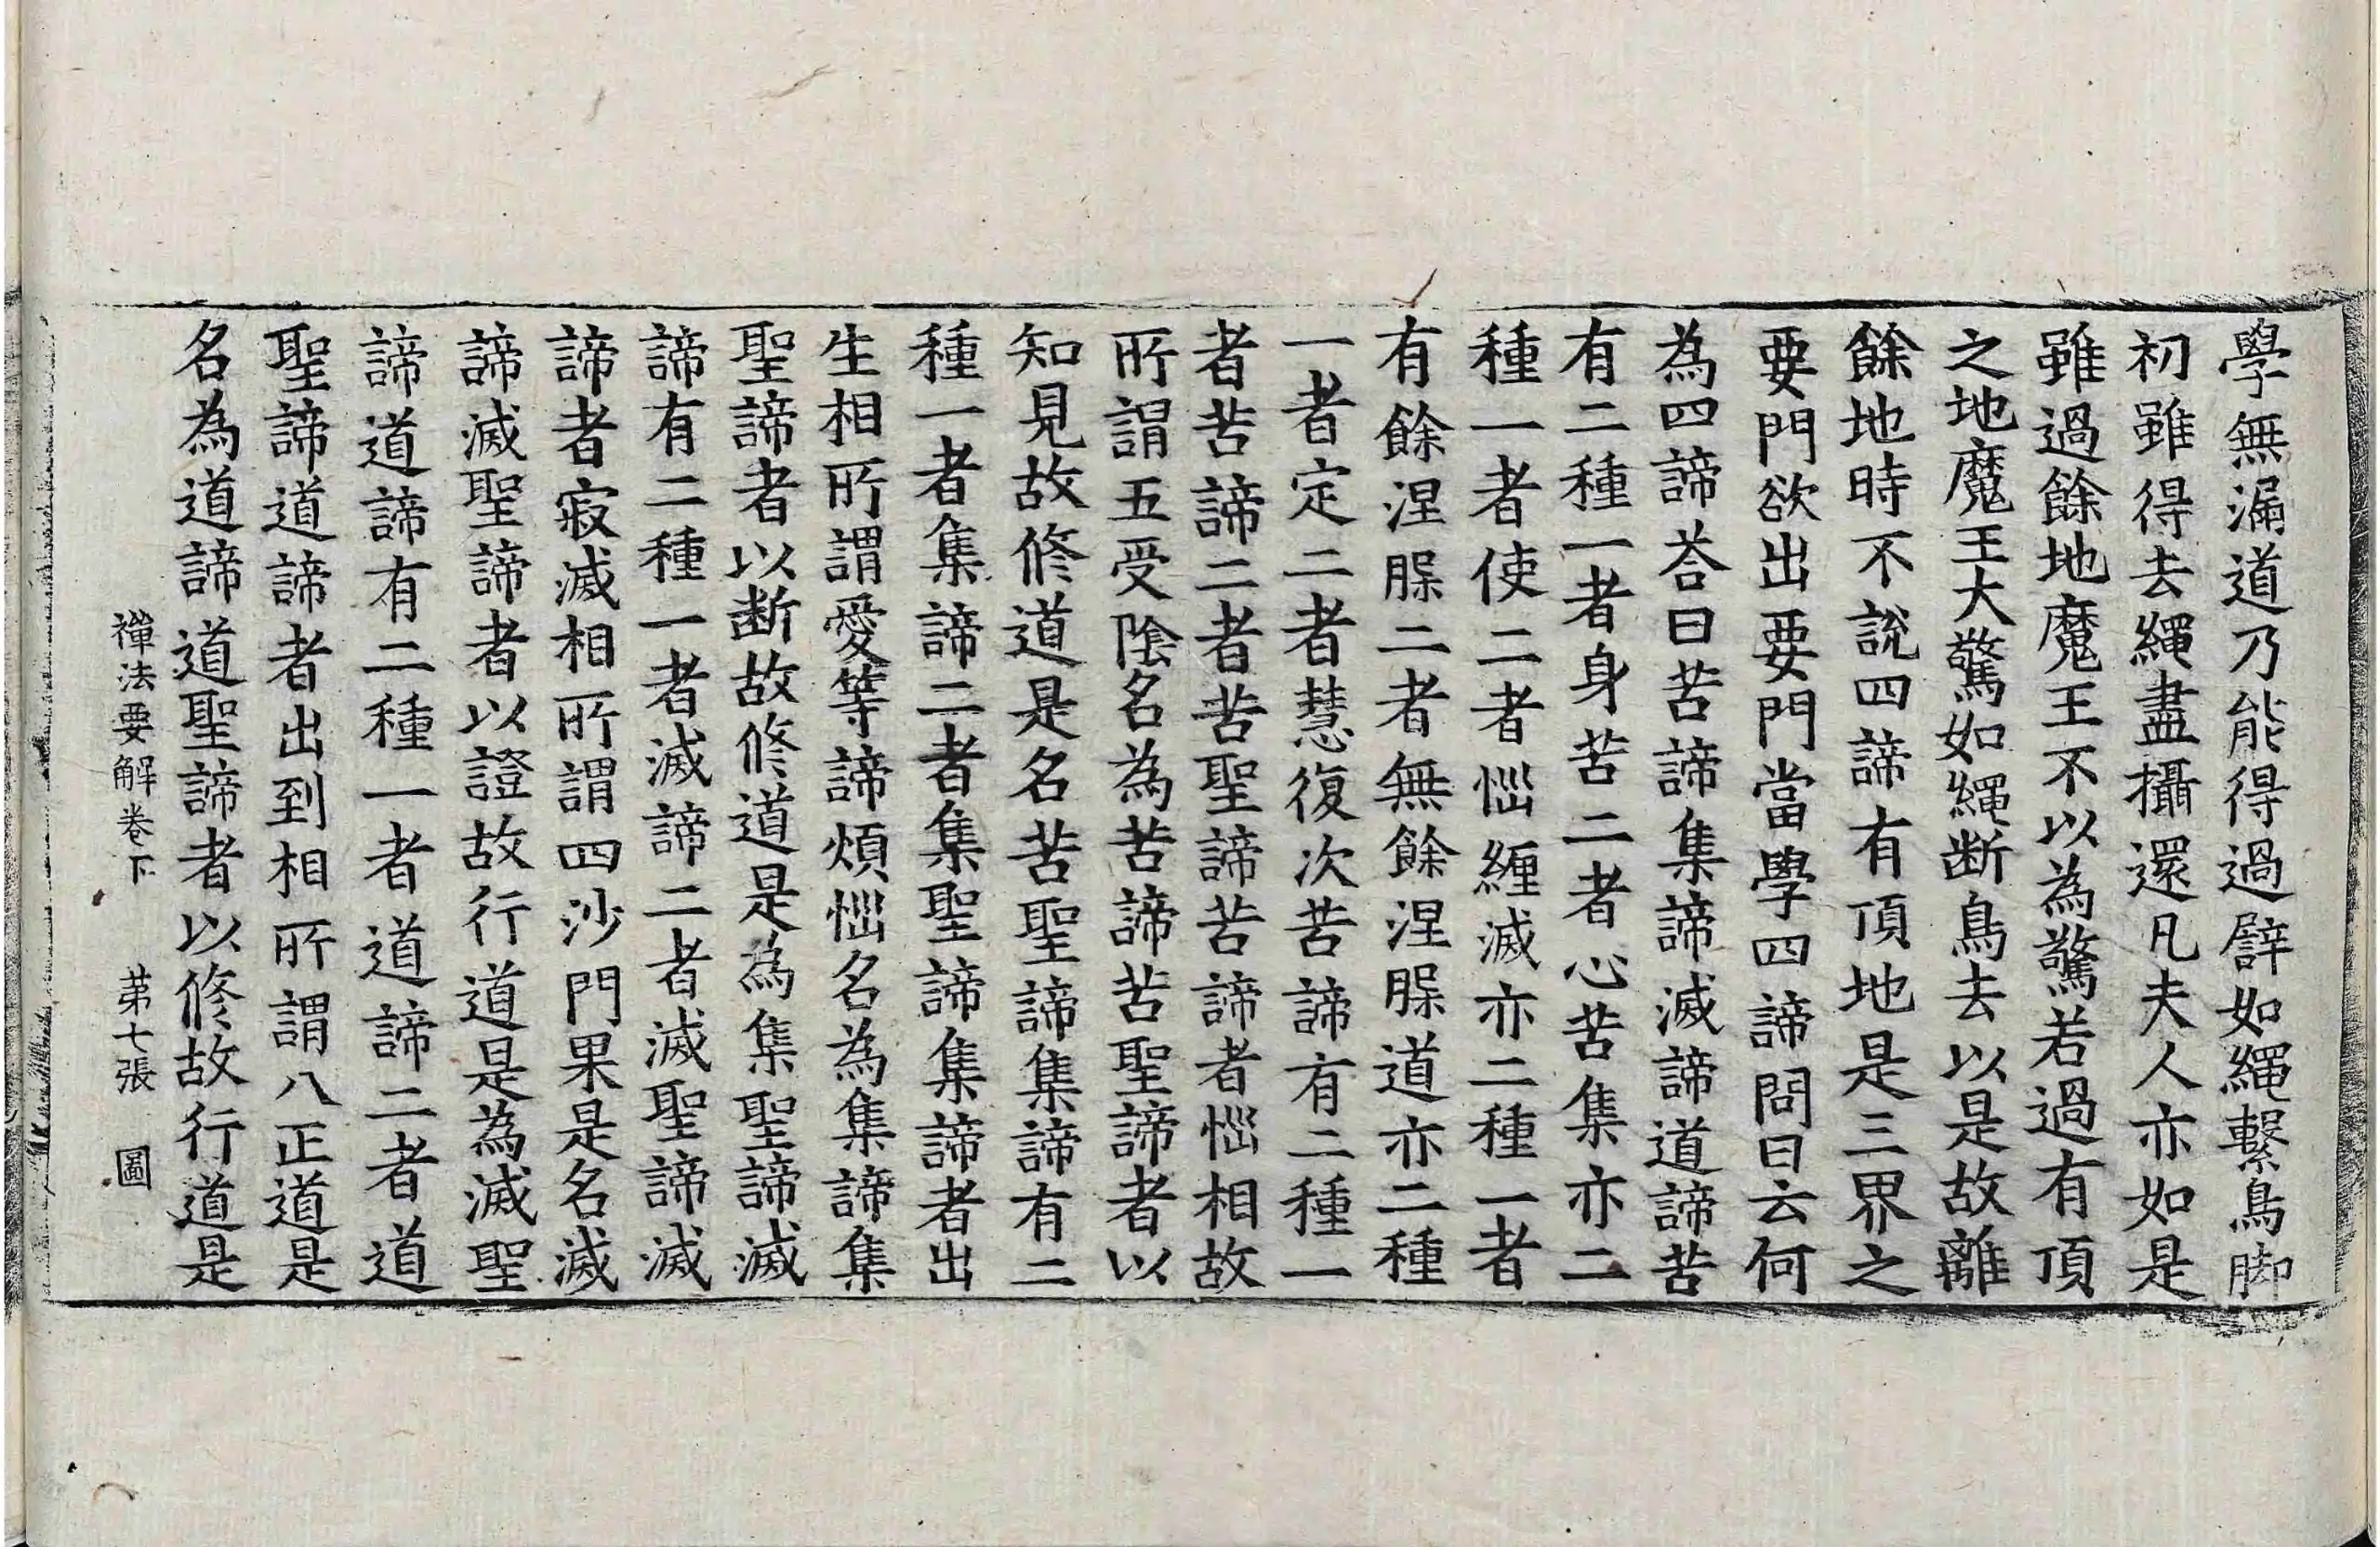 學無漏道乃能得過譬如繩繫鳥脚
初雖得去繩盡攝還凡夫人亦如是
雖過餘地魔王不以為驚若過有頂
之地魔王大驚如繩断鳥去以是故離
餘地時不說四諦有頂地是三界之
要門欲出要門當學四諦問曰云何
為四諦荅曰苦諦集諦滅諦道諦苦
有二種一者身苦二者心苦集亦二
種一者使二者惱纏滅亦二種一者
有餘涅槃二者無餘涅槃道亦二種
一者定二者慧復次苦諦有二種一
者苦諦二者苦聖諦苦諦者惱相故
所謂五受陰名為苦諦苦聖諦者以
知見故修道是名苦聖諦集諦有二
種一者集諦二者集聖諦集諦者出
生相所謂愛等諦煩惱名為集諦集
聖諦者以断故修道是為集聖諦滅
諦有二種一者滅諦二者滅聖諦滅
諦者寂滅相所謂四沙門果是名滅
諦滅聖諦者以證故行道是為滅聖
諦道諦有二種一者道諦二者道
聖諦道諦者出到相所謂八正道是
名為道諦道聖諦者以修故行道是
禪法要解卷下 第七張 圖